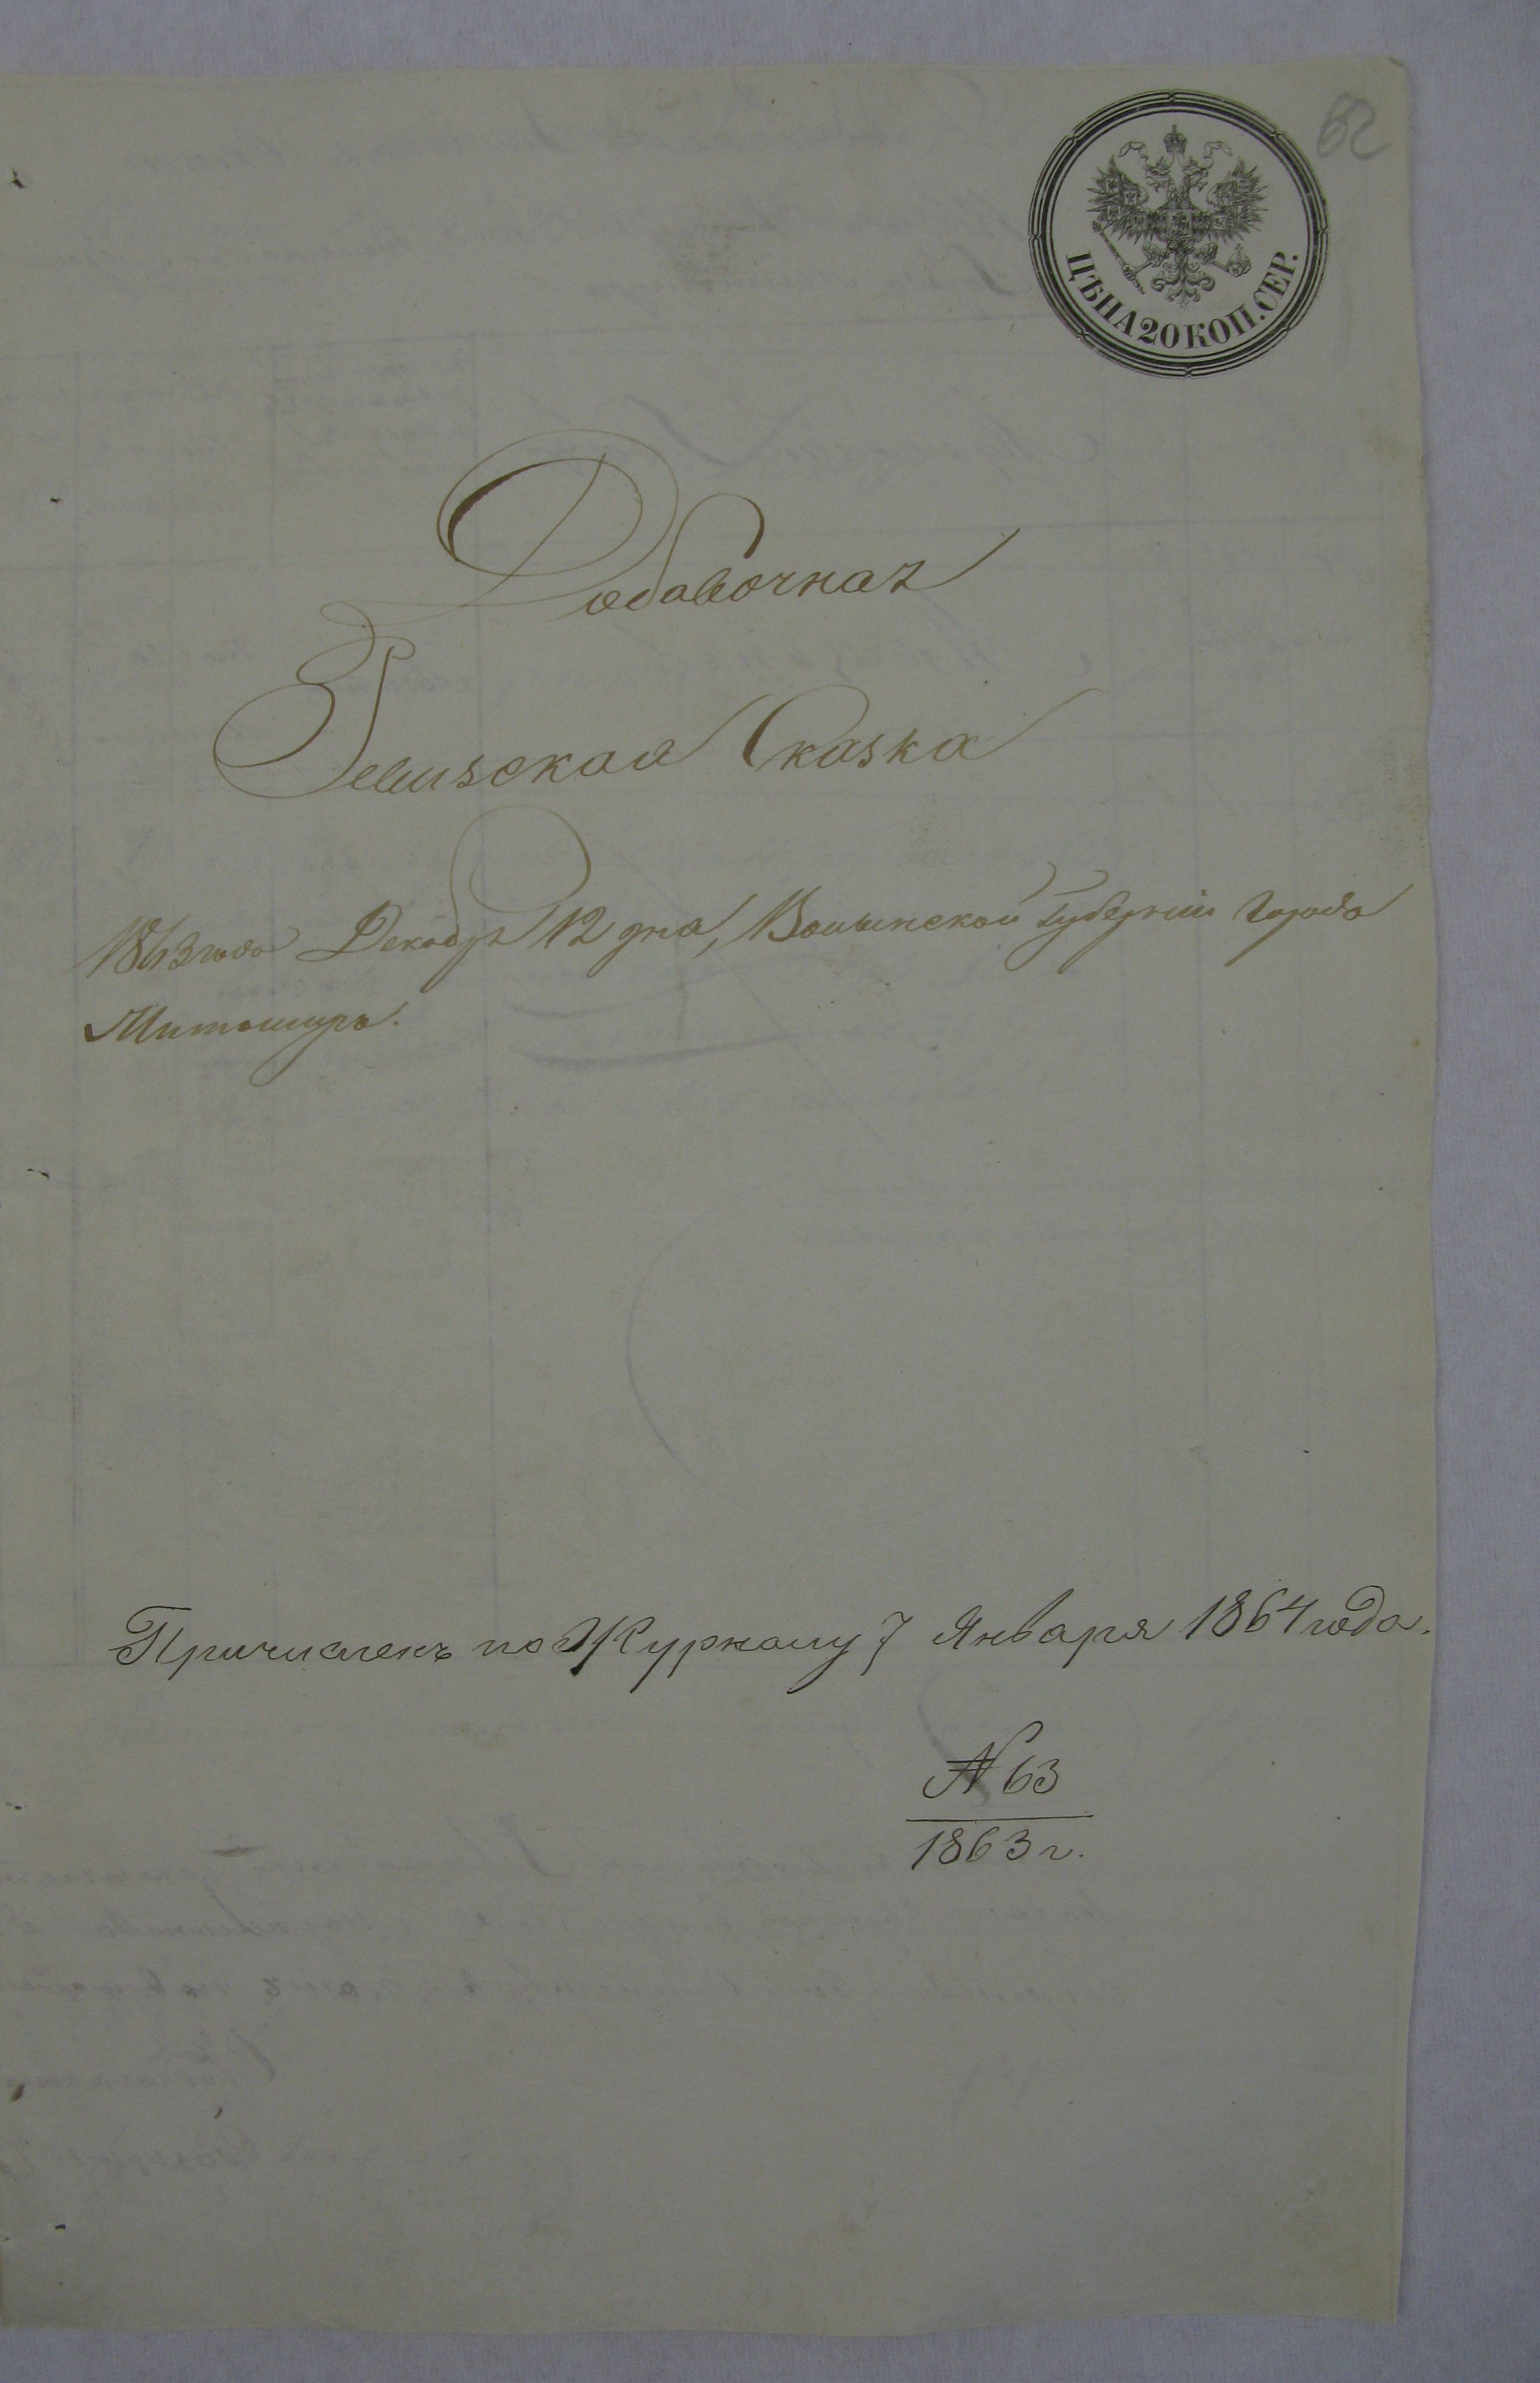 62
ЦѢНА 20 КОП. СЕР.
Добавочная
Ревизская Сказка
1863 года Декабря 12 дня, Волынской Губерніи Города
Житомира.
Причисленъ по Журналу 7 Января 1864 года.
№ 63
1863 г.